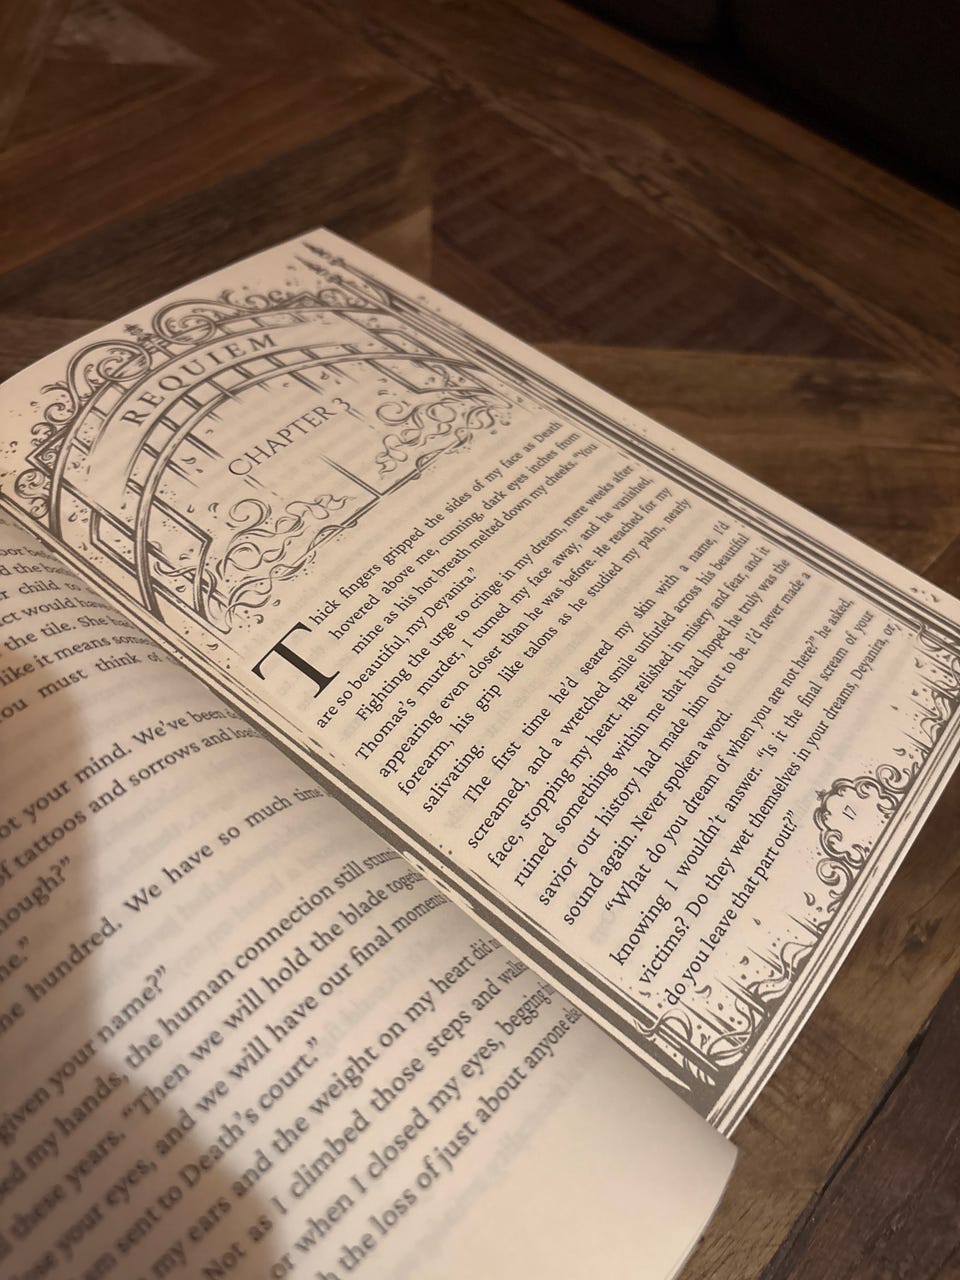 oor before
d the ba
r child to
ct would have
the tile. She ha
like it means some
ou must think of
ot your mind. We've been
of tattoos and sorrows and
hough?"
ne."
ne hundred. We have so much time
given your name?"
ed my hands, the human connection still stunning
these years. "Then we will hold the blade together
ose your eyes, and we will have our final moments
m sent to Death's court."
my ears and the weight on my heart did n
Not as I climbed those steps and walke
or when I closed my eyes, begging
h the loss of just about anyone else
REQUIEM
CHAPTER 3
Thick fingers gripped the sides of my face as Death
hovered above me, cunning, dark eyes inches from
mine as his hot breath melted down my cheeks. "You
are so beautiful, my Deyanira."
Fighting the urge to cringe in my dream, mere weeks after
Thomas's murder, I turned my face away, and he vanished,
appearing even closer than he was before. He reached for my
forearm, his grip like talons as he studied my palm, nearly
salivating.
The first time he'd seared my skin with a name, I'd
screamed, and a wretched smile unfurled across his beautiful
face, stopping my heart. He relished in misery and fear, and it
ruined something within me that had hoped he truly was the
savior our history had made him out to be. I'd never made a
sound again. Never spoken a word.
"What do you dream of when you are not here?" he asked,
knowing I wouldn't answer. "Is it the final scream of your
victims? Do they wet themselves in your dreams, Deyanira, or
do you leave that part out?"
17